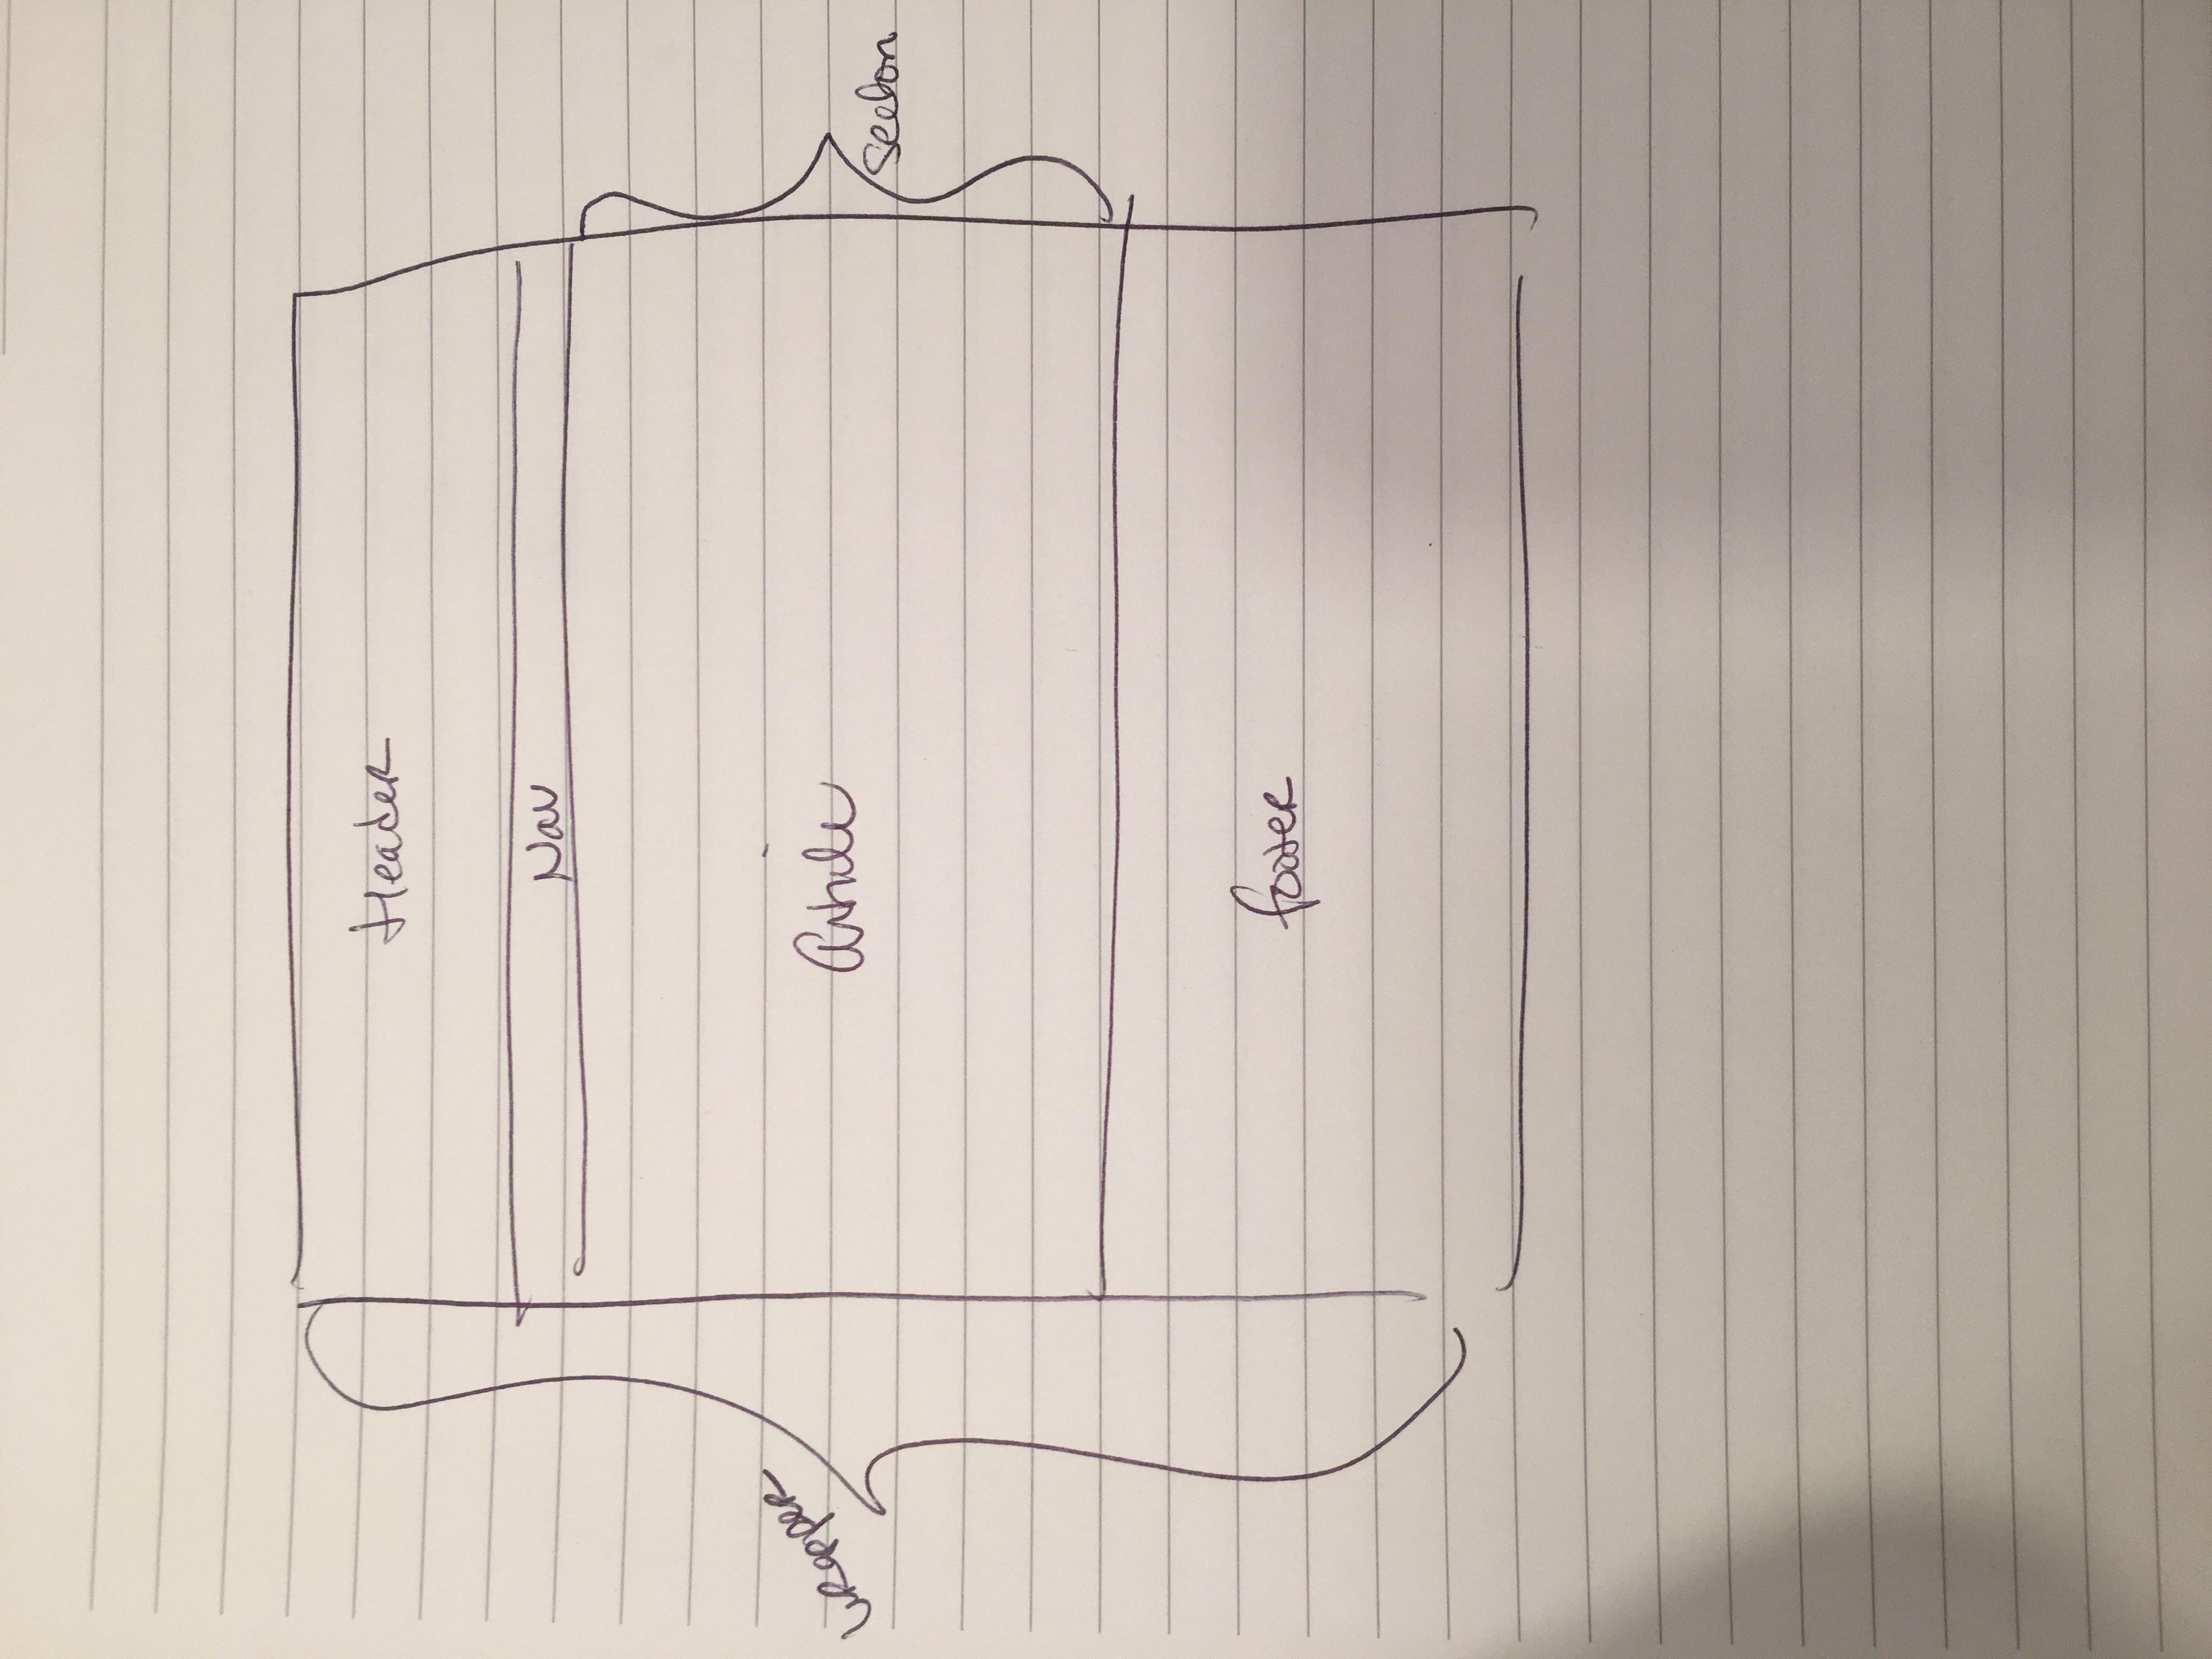 Header
Nav
wrapper
Article
Section
footer